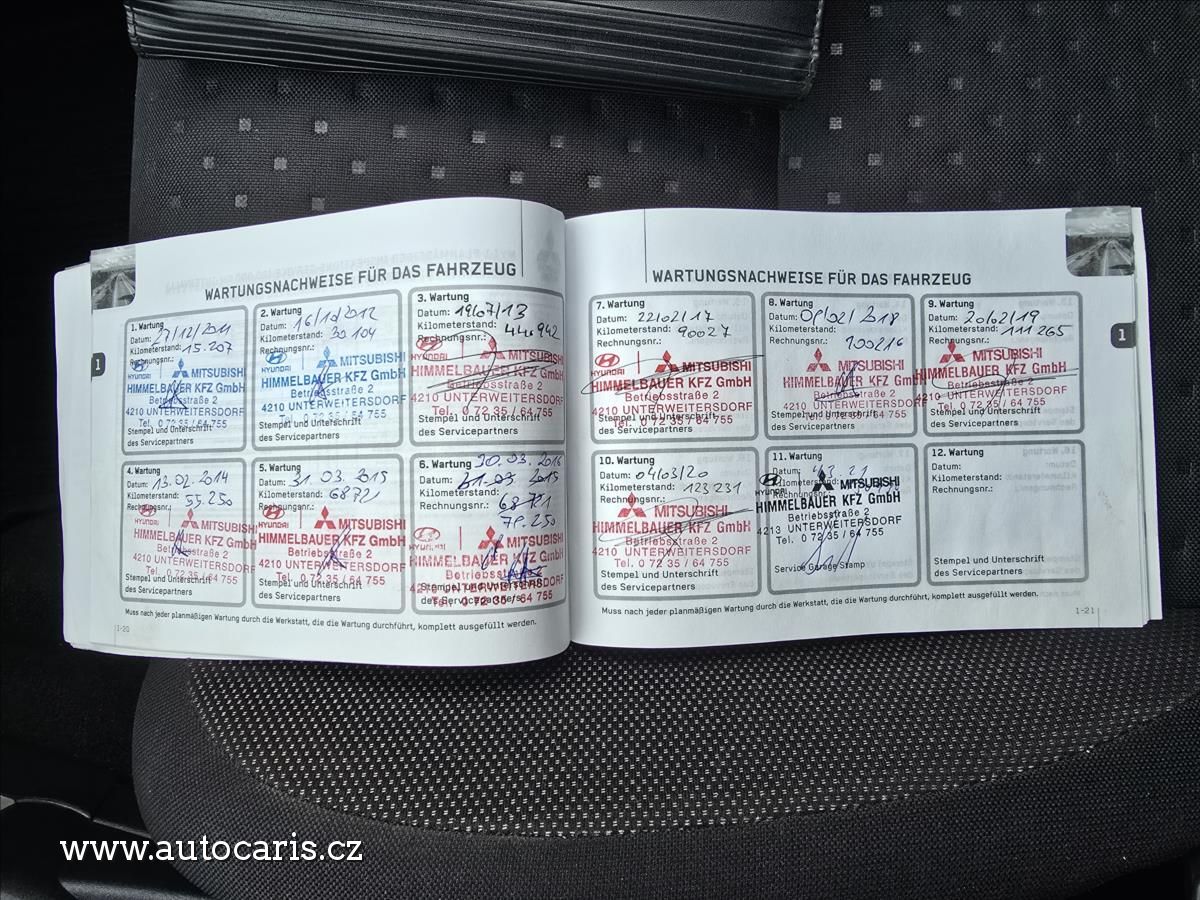 WARTUNGSNACHWEISE FÜR DAS FAHRZEUG
1. Wartung
Datum: 21/12/2011
Kilometerstand: 15.207
Rechnungsnr.:
HYUNDAI MITSUBISHI
HIMMELBAUER KFZ GmbH
Betriebsstraße 2
4210 UNTERWEITERSDORF
Tel. 0 72 35 / 64 755
Stempel und Unterschrift
des Servicepartners
2. Wartung
Datum: 16/10/2012
Kilometerstand: 30 104
Rechnungsnr.:
HYUNDAI MITSUBISHI
HIMMELBAUER KFZ GmbH
Betriebsstraße 2
4210 UNTERWEITERSDORF
Tel. 0 72 35 / 64 755
Stempel und Unterschrift
des Servicepartners
3. Wartung
Datum: 19/07/13
Kilometerstand: 44 942
Rechnungsnr.:
HYUNDAI MITSUBISHI
HIMMELBAUER KFZ GmbH
Betriebsstraße 2
4210 UNTERWEITERSDORF
Tel. 0 72 35 / 64 755
Stempel und Unterschrift
des Servicepartners
4. Wartung
Datum: 13.02.2014
Kilometerstand: 55.250
Rechnungsnr.:
HYUNDAI MITSUBISHI
HIMMELBAUER KFZ GmbH
Betriebsstraße 2
4210 UNTERWEITERSDORF
Tel. 0 72 35 / 64 755
Stempel und Unterschrift
des Servicepartners
5. Wartung
Datum: 31.03.2015
Kilometerstand: 68721
Rechnungsnr.:
HYUNDAI MITSUBISHI
HIMMELBAUER KFZ GmbH
Betriebsstraße 2
4210 UNTERWEITERSDORF
Tel. 0 72 35 / 64 755
Stempel und Unterschrift
des Servicepartners
6. Wartung 30.03.2016
Datum: 31.03.2015
Kilometerstand:
Rechnungsnr.: 68721
79.250
HYUNDAI MITSUBISHI
HIMMELBAUER KFZ GmbH
4210 UNTERWEITERSDORF
Tel. 0 72 35 / 64 755
Stempel und Unterschrift
des Servicepartners
Muss nach jeder planmäßigen Wartung durch die Werkstatt, die die Wartung durchführt, komplett ausgefüllt werden.
1-20
1
WARTUNGSNACHWEISE FÜR DAS FAHRZEUG
7. Wartung
Datum: 22/02/17
Kilometerstand: 90027
Rechnungsnr.:
HYUNDAI MITSUBISHI
HIMMELBAUER KFZ GmbH
Betriebsstraße 2
4210 UNTERWEITERSDORF
Tel. 0 72 35 / 64 755
Stempel und Unterschrift
des Servicepartners
8. Wartung
Datum: 2018
Kilometerstand:
Rechnungsnr.: 100216
MITSUBISHI
HIMMELBAUER KFZ GmbH
Betriebsstraße 2
4210 UNTERWEITERSDORF
Tel. 0 72 35 / 64 755
Stempel und Unterschrift
des Servicepartners
9. Wartung
Datum: 20/02/19
Kilometerstand: 111 265
Rechnungsnr.:
MITSUBISHI
HIMMELBAUER KFZ GmbH
Betriebsstraße 2
4210 UNTERWEITERSDORF
Tel. 0 72 35 / 64 755
Stempel und Unterschrift
des Servicepartners
10. Wartung
Datum: 04/03/20
Kilometerstand: 123 231
Rechnungsnr.:
MITSUBISHI
HIMMELBAUER KFZ GmbH
Betriebsstraße 2
4210 UNTERWEITERSDORF
Tel. 0 72 35 / 64 755
Stempel und Unterschrift
des Servicepartners
11. Wartung
Datum:
Kilometerstand:
Rechnungsnr.:
HYUNDAI MITSUBISHI
HIMMELBAUER KFZ GmbH
Betriebsstraße 2
4213 UNTERWEITERSDORF
Tel. 0 72 35 / 64 755
Service Garage Stamp
12. Wartung
Datum:
Kilometerstand:
Rechnungsnr.:
Stempel und Unterschrift
des Servicepartners
Muss nach jeder planmäßigen Wartung durch die Werkstatt, die die Wartung durchführt, komplett ausgefüllt werden.
1-21
1
www.autocaris.cz